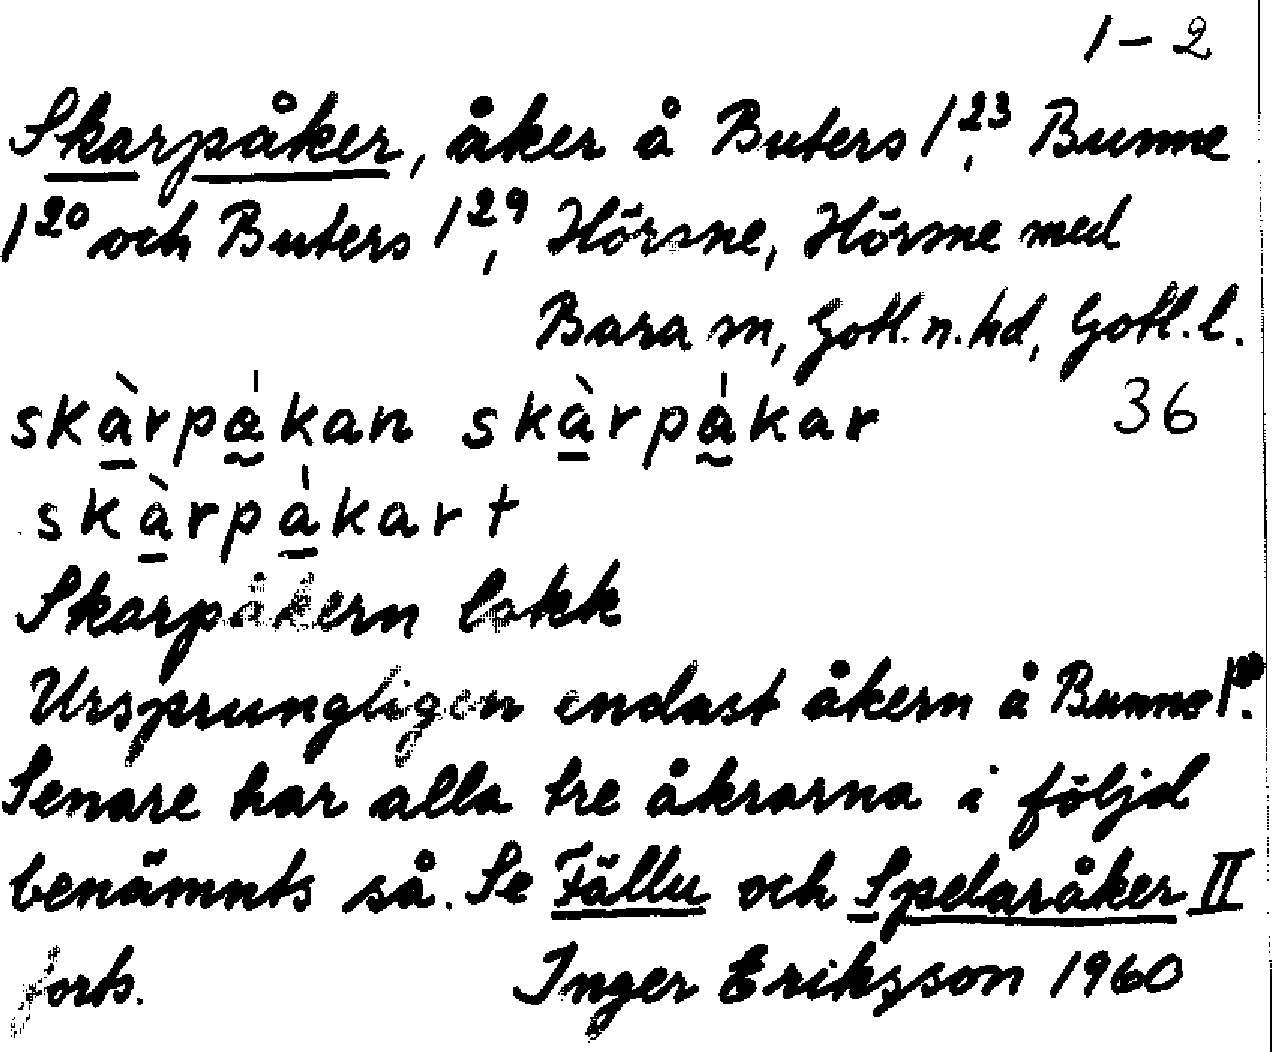 1-2
Skarpåker, åker å Buters 1²³, Bunne
1²⁰ och Buters 1²⁹, Hörsne, Hörsne med
Bara sn, Gotl. n. hd, Gotl. l.
skàrpákan skàrpákar 36
skàrpákart
Skarpåkern lokk
Ursprungligen endast åkern å Bunne 1²⁰.
Senare har alla tre åkrarna i följd
benämnts så. Se Fällu och Spelaråker II
forts. Inger Eriksson 1960